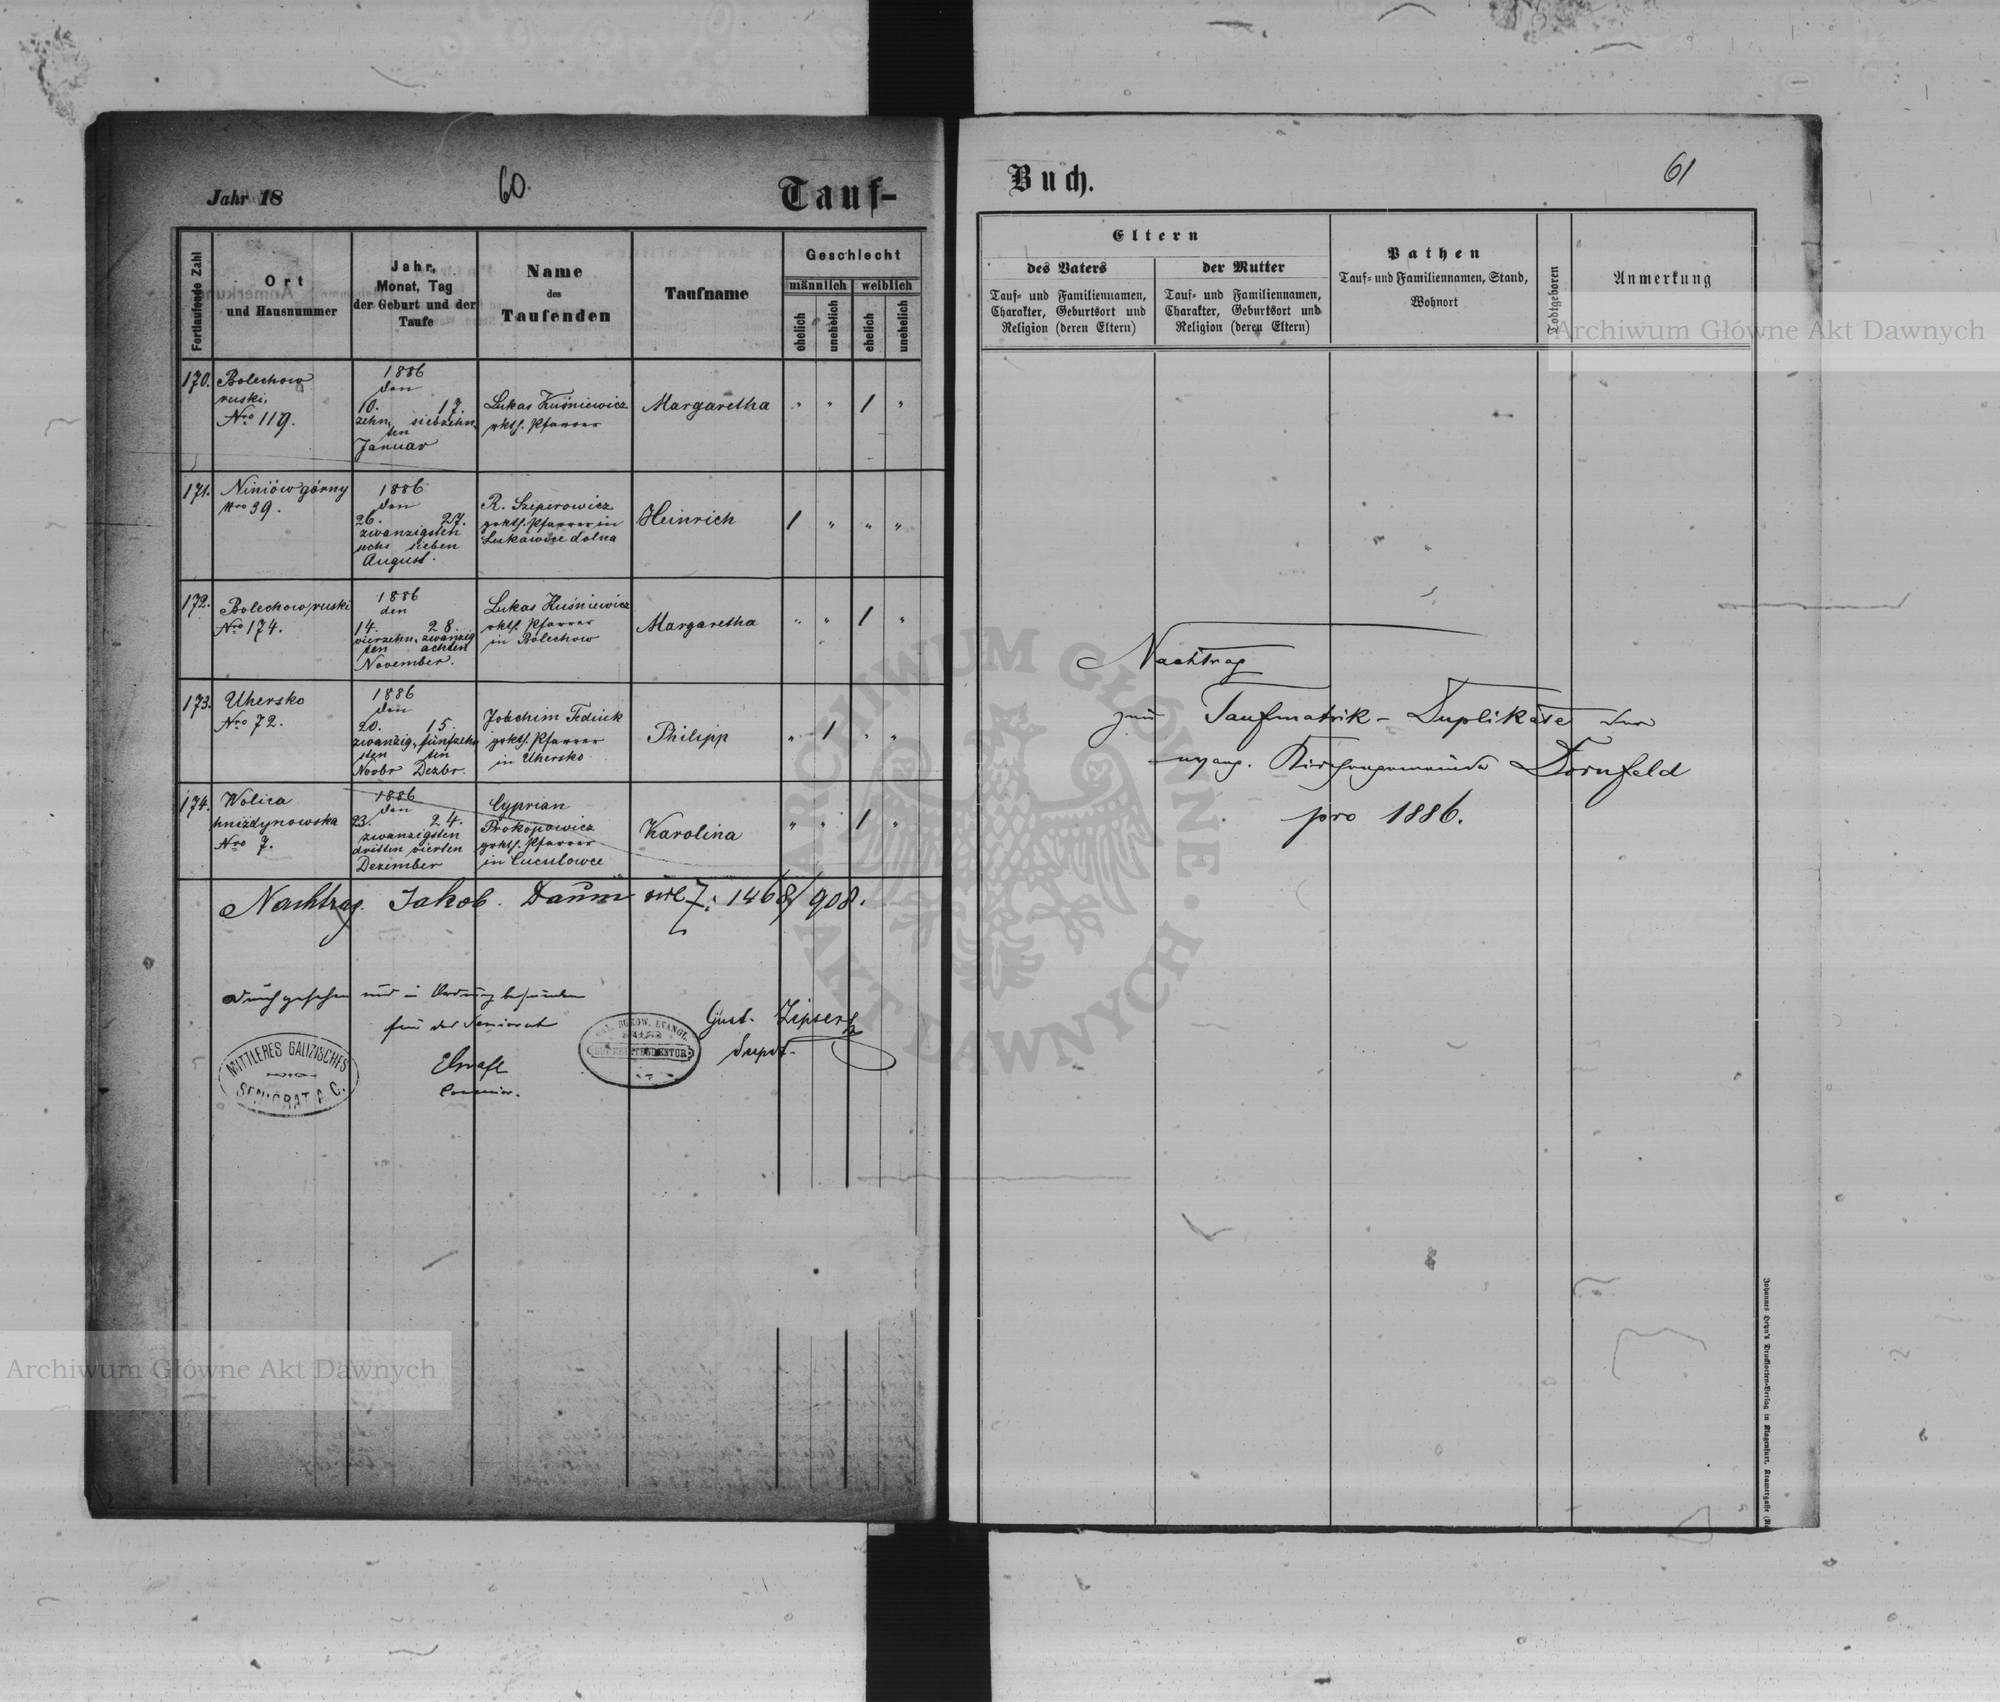 Jahr 18
60.
Tauf-
Fortlaufende Zahl
Ort
und Hausnummer
Jahr,
Monat, Tag
der Geburt und der
Taufe
Name
des
Taufenden
Taufname
Geschlecht
männlich
weiblich
ehelich
unehelich
ehelich
unehelich
170.
Bolechow
ruski,
Nro 119.
1886
den
10. 17.
zehn, siebzehn,
ten
Januar
Lukas Kuśniewicz
rkth. Pfarrer
Margaretha
" " 1 "
171.
Niniów górny
Nro 39.
1886
den
26. 27.
zwanzigsten
sechs sieben
August.
R. Szeperowicz
grkth. Pfarrer in
Lukawice dolna
Heinrich
1 " " "
172.
Bolechow ruski
Nro 174.
1886
den
14. 28.
vierzehn, zwanzig
ten achten
November.
Lukas Kuśniewicz
rkth. Pfarrer
in Bolechow
Margaretha
" " 1 "
173.
Uhersko
Nro 72.
1886
den
20. 15.
zwanzig, fünfzehn
sten ten
Novbr Dezbr.
Joachim Fediuk
grkth. Pfarrer
in Uhersko
Philipp
" 1 " "
174.
Wolica
hnizdynowska
Nro 7.
1886
den
23. 24.
zwanzigsten
dritten vierten
Dezember
Cyprian
Prokopowicz
grkth. Pfarrer
in Cuculowce
Karolina
" " 1 "
Nachtrag. Jakob Daum Z: 1468/908.
Durchgesehen und in Ordnung befunden
für das Seniorat
Senior.
MITTLERES GALIZISCHES
SENIORAT A. C.
GAL. BUKOW. EVANGL.
SUPERINTENDENTUR
Gust. Zipser
Supdt.
Buch.
61
Eltern
des Vaters
Tauf- und Familiennamen,
Charakter, Geburtsort und
Religion (deren Eltern)
der Mutter
Tauf- und Familiennamen,
Charakter, Geburtsort und
Religion (deren Eltern)
Pathen
Tauf- und Familiennamen, Stand,
Wohnort
Todtgeboren
Anmerkung
Nachtrag
zum Taufmatrik-Duplikate der
evang. Kirchengemeinde Dornfeld
pro 1886.
Archiwum Główne Akt Dawnych
Archiwum Główne Akt Dawnych
ARCHIWUM GŁÓWNE • AKT DAWNYCH •